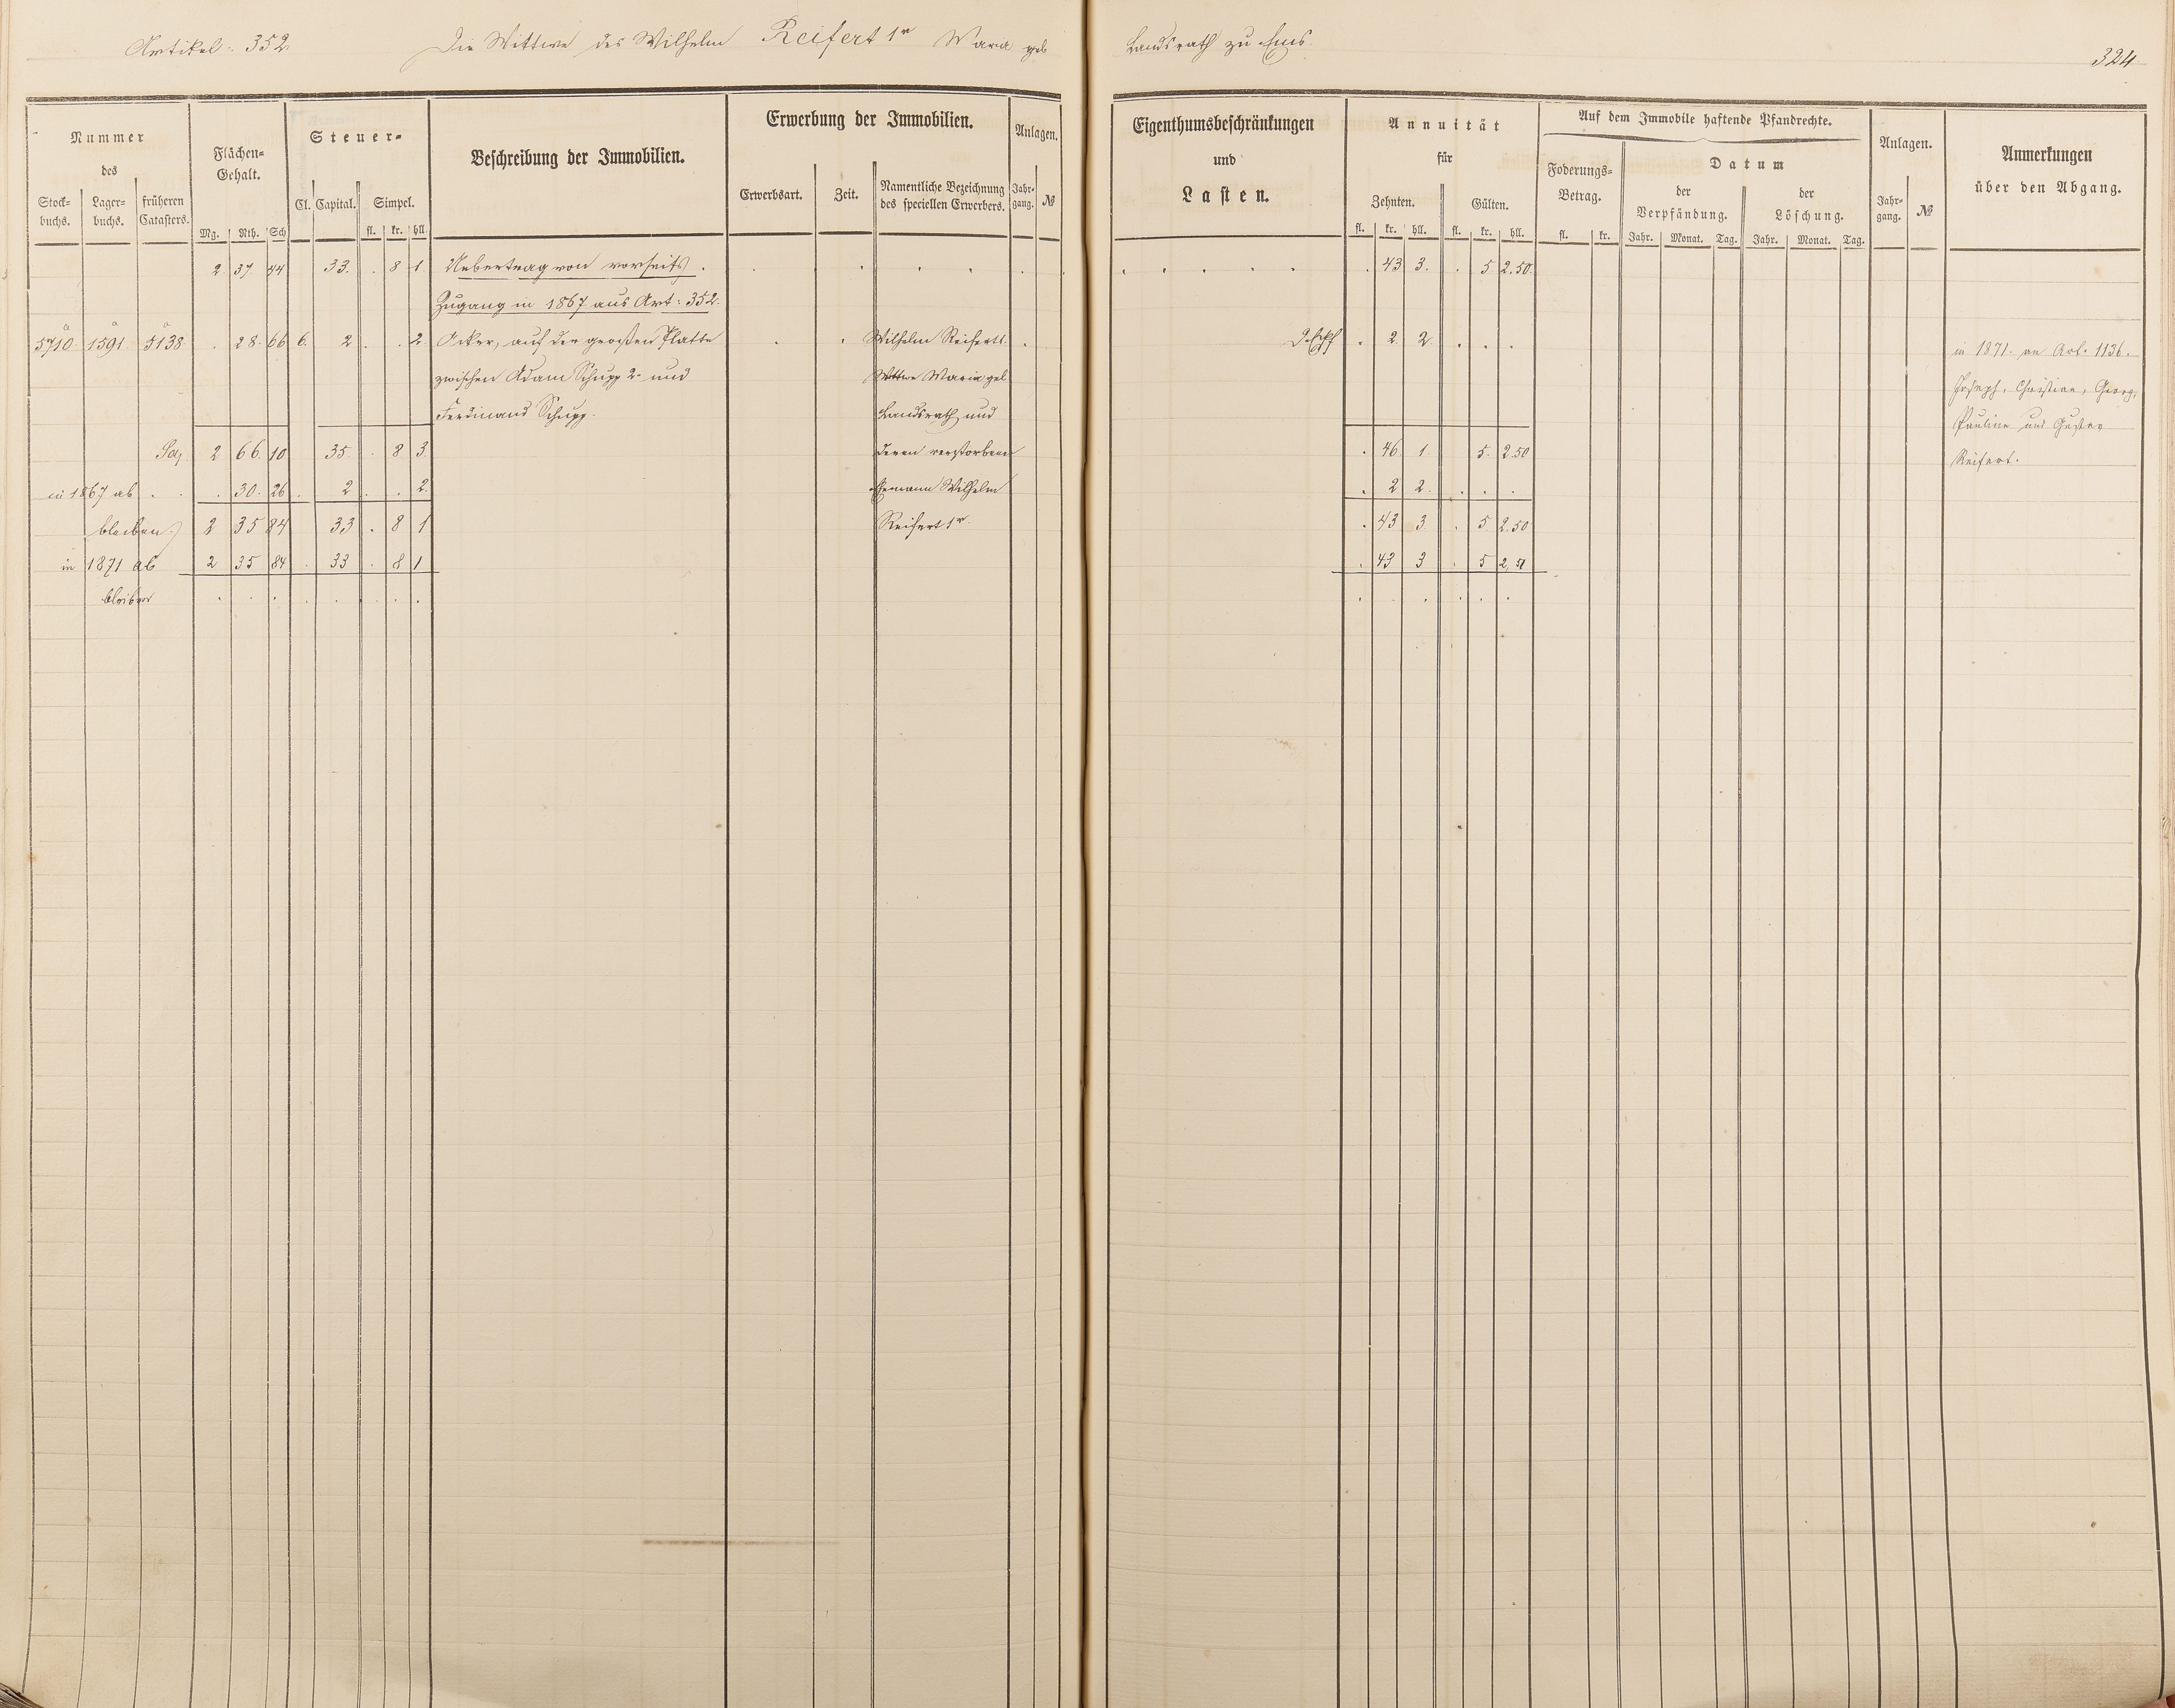 Artikel: 352 Die Wittwe des Wilhelm Reifert 1r Maria geb Landsrath zu Ems. 324
Nummer des
Stock-buchs. Lager-buchs. früheren Catasters.
Flächen-Gehalt.
Mg. Rth. Sch
Steuer-
Cl. Capital. Simpel.
fl. kr. hll.
Beschreibung der Immobilien.
Erwerbung der Immobilien.
Erwerbsart. Zeit. Namentliche Bezeichnung des speciellen Erwerbers.
Anlagen.
Jahr-gang. №
Eigenthumsbeschränkungen
und
Lasten.
Annuität
für
Zehnten. Gülten.
fl. kr. hll. fl. kr. hll.
Auf dem Immobile haftende Pfandrechte.
Foderungs-Betrag.
fl. kr.
Datum
der Verpfändung. der Löschung.
Jahr. Monat. Tag. Jahr. Monat. Tag.
Anlagen.
Jahr-gang. №
Anmerkungen
über den Abgang.
2 37 44 33. . 8 1 Uebertrag von vorseits. . 43 3. . 5 2.50.
Zugang in 1867 aus Art: 352.
a a a
5710 1591 5138 . 28. 66 6. 2 . . 2 Acker, auf der großen Platte . . Wilhelm Reifert 1. . 2. 2 . . . in 1871. an Art. 1136.
zwischen Adam Schupp 2r und Wittwe Maria geb Joseph, Christian, Georg,
Ferdinand Schupp. Landsrath und Pauline und Gustav
Sa, 2 66. 10 35. . 8 3 deren verstorbener . 46 1. 5. 2.50 Reifert.
in 1867 ab . . . 30. 26 . 2 . . 2. Ehemann Wilhelm . 2 2. . . .
bleiben 2 35 84 33 . 8 1 Reifert 1r. . 43 3 . 5 2.50
in 1871 ab 2 35 84 . 33 . 8 1 . 43 3 . 5 2,51
bleiben . . . . . . . . . . . . . .